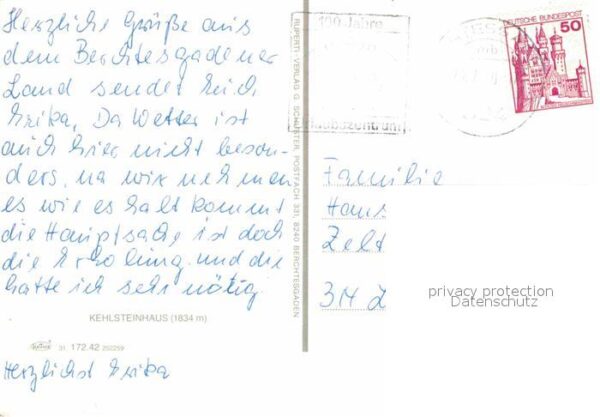 Herzliche Grüße aus
dem Berchtesgadener
Land sendet Euch
Erika. Da Wetter ist
auch hier nicht beson-
ders, na wir nehmen
es wie es halt kommt
die Hauptsache ist doch
die Erholung und die
hatte ich sehr nötig
KEHLSTEINHAUS (1834 m)
31 172.42 250259
Herzlichst Erika
RUPERTI-VERLAG G. SCHUSTER, POSTFACH 331, 8240 BERCHTESGADEN
100 Jahre
DEUTSCHE BUNDESPOST
50
Familie
Hans
Zelt
privacy protection
Datenschutz